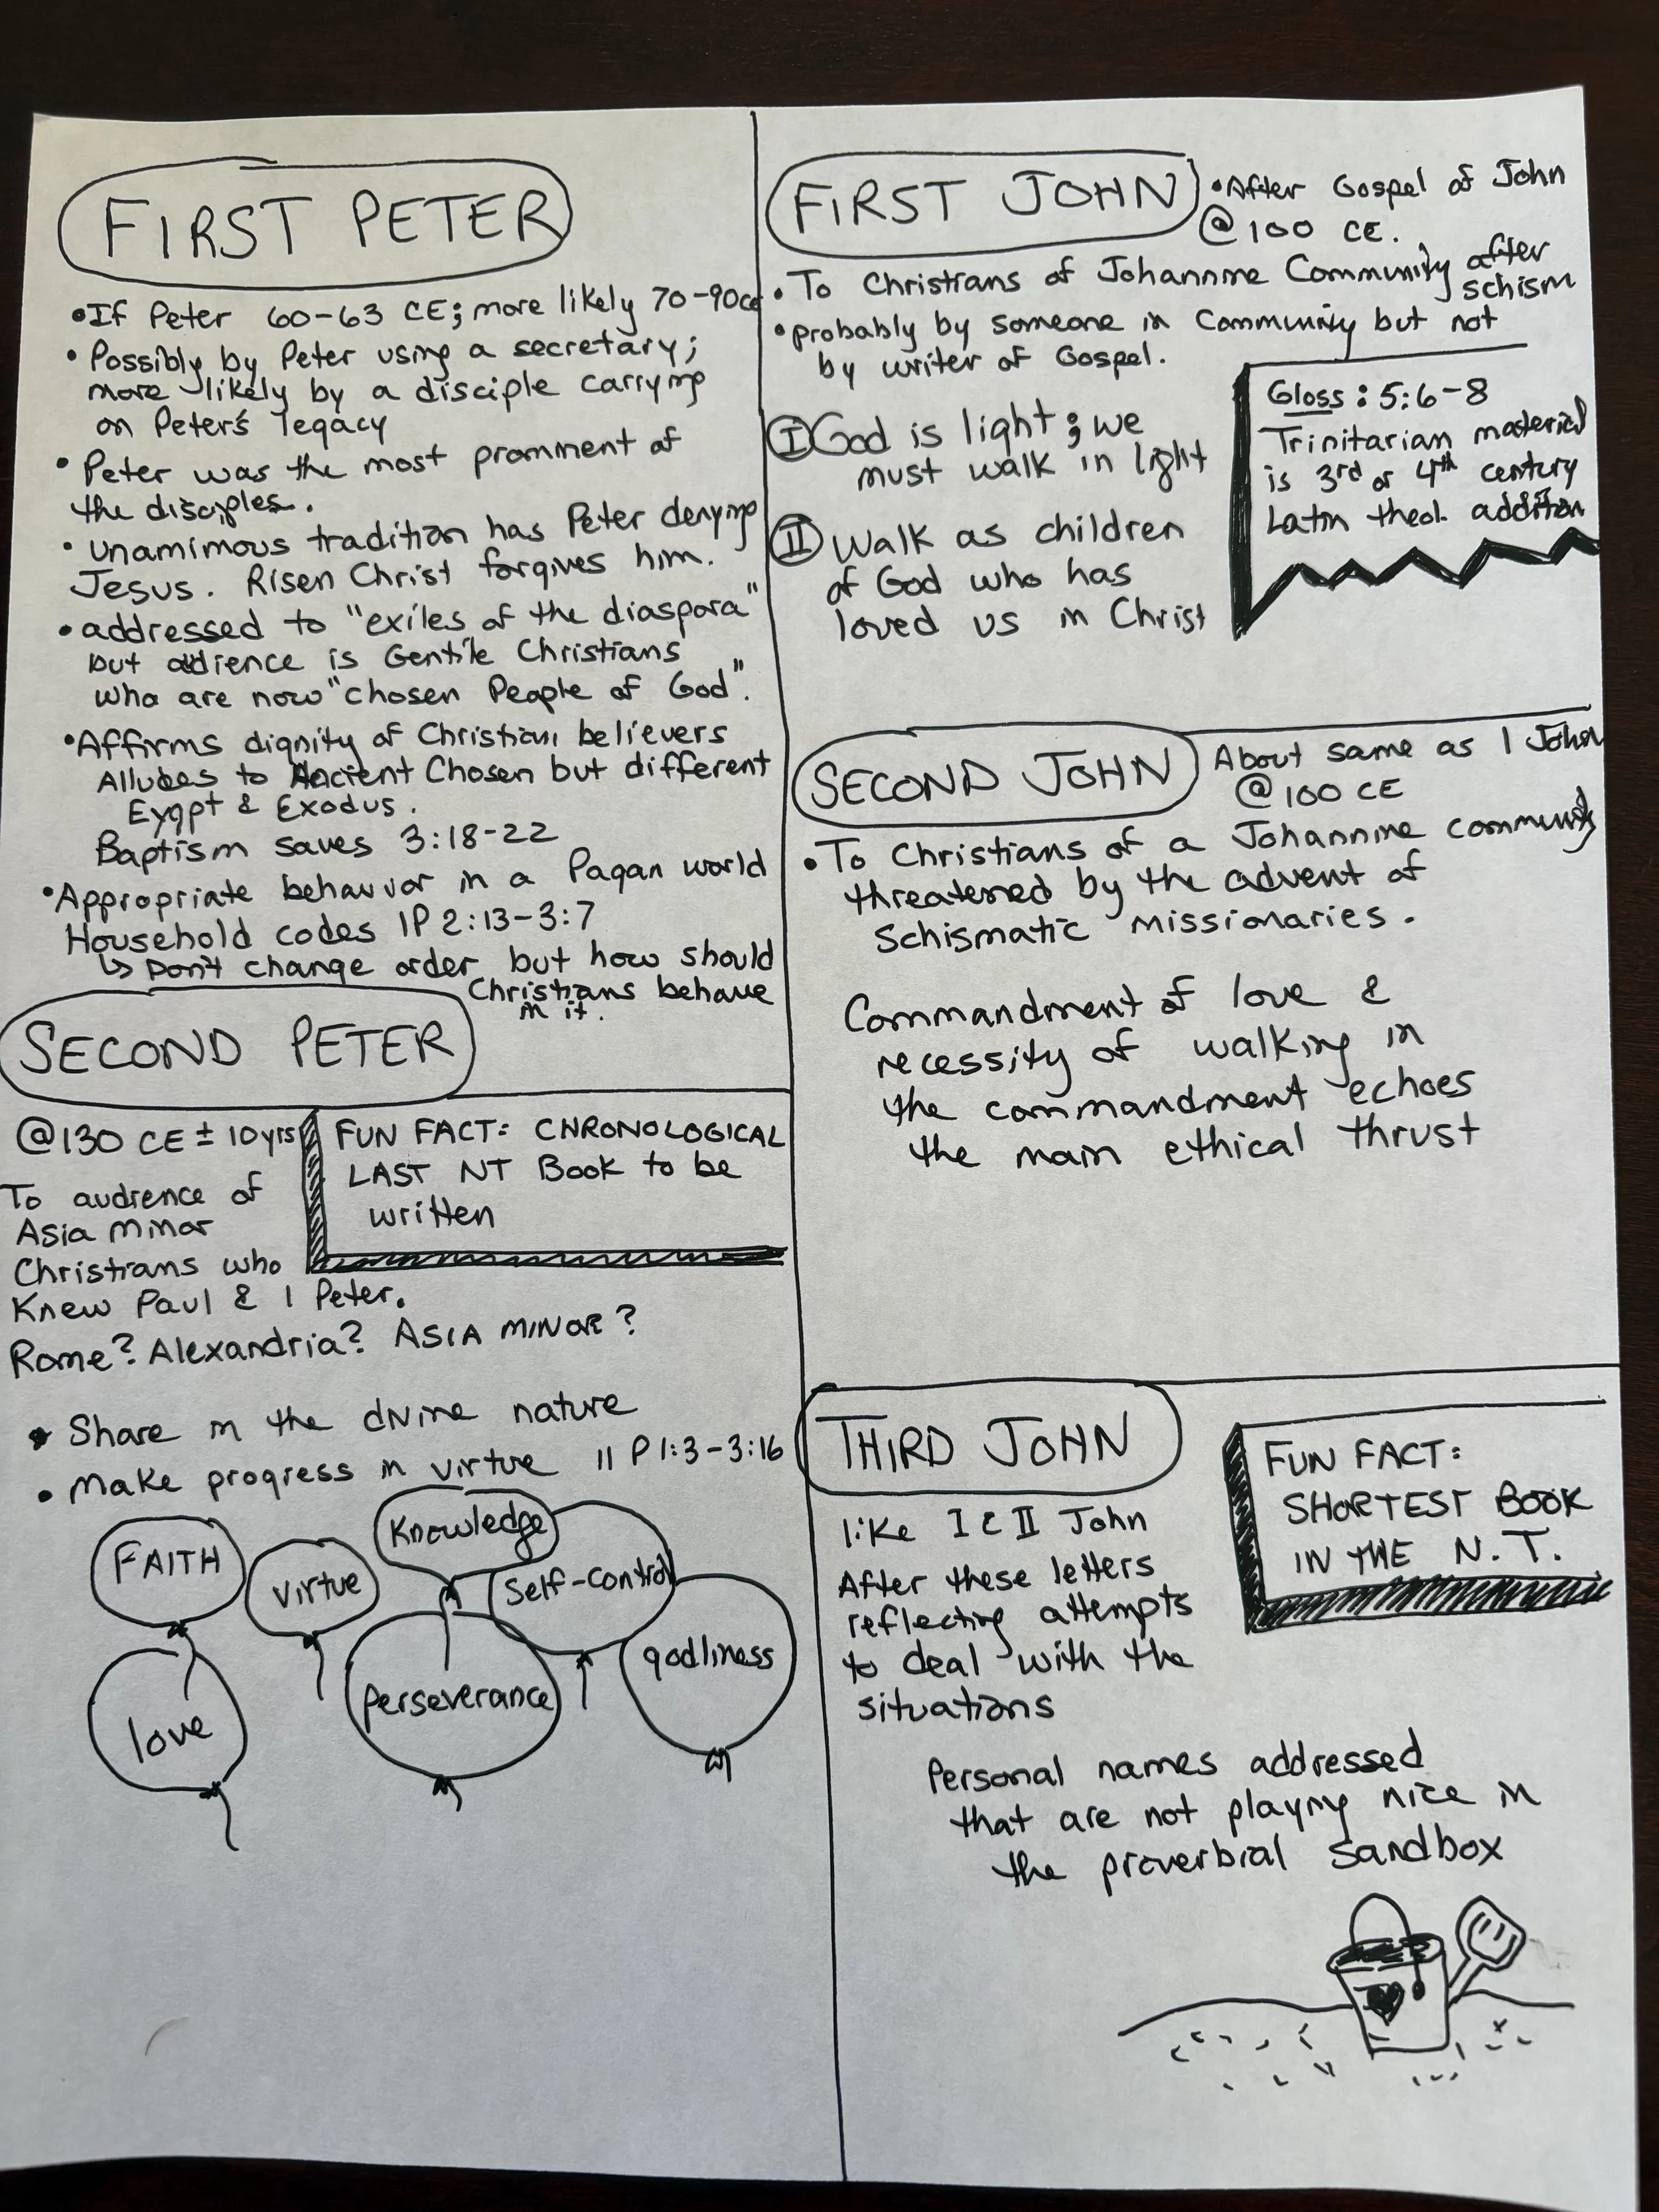 FIRST PETER
•If Peter 60-63 CE; more likely 70-90CE
• Possibly by Peter using a secretary;
more likely by a disciple carrying
on Peter's legacy
• Peter was the most prominent of
the disciples.
• unamimous tradition has Peter denying
Jesus. Risen Christ forgives him.
• addressed to "exiles of the diaspora"
but audience is Gentile Christians
who are now "chosen People of God".
•Affirms dignity of Christian believers
Alludes to Ancient Chosen but different
Eygpt & Exodus.
Baptism saves 3:18-22
•Appropriate behavior in a Pagan world
Household codes IP 2:13-3:7
↳ Don't change order but how should
Christians behave
in it.
SECOND PETER
@130 CE ± 10yrs
To audience of
Asia Minor
Christians who
Knew Paul & 1 Peter.
Rome? Alexandria? ASIA MINOR?
FUN FACT: CHRONOLOGICAL
LAST NT Book to be
written
• Share in the divine nature
• Make progress in virtue II P 1:3-3:16
FAITH
virtue
Knowledge
Self-control
perseverance
godliness
love
FIRST JOHN
•After Gospel of John
@100 CE.
• To Christians of Johannine Community after
schism
• probably by someone in Community but not
by writer of Gospel.
I God is light; we
must walk in light
II Walk as children
of God who has
loved us in Christ
Gloss: 5:6-8
Trinitarian material
is 3rd or 4th century
Latin theol. addition
SECOND JOHN
About same as 1 John
@100 CE
• To Christians of a Johannine community
threatened by the advent of
Schismatic missionaries.
Commandment of love &
necessity of walking in
the commandment echoes
the main ethical thrust
THIRD JOHN
like I & II John
After these letters
reflecting attempts
to deal with the
situations
FUN FACT:
SHORTEST BOOK
IN THE N.T.
Personal names addressed
that are not playing nice in
the proverbial sandbox